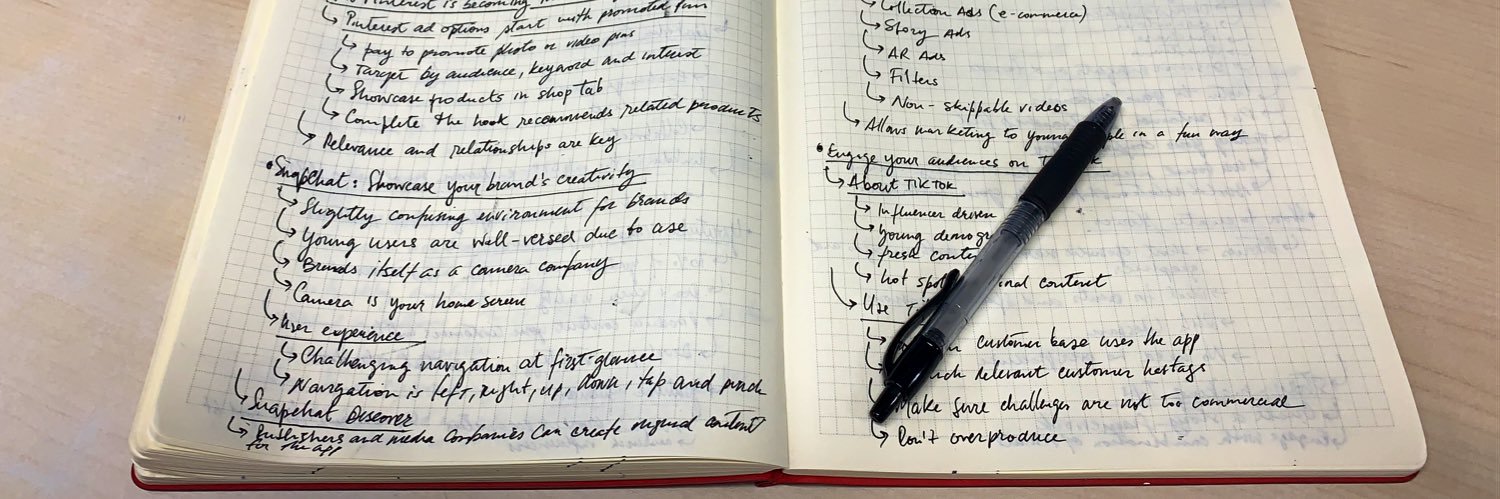 Pinterest is becoming
Pinterest ad options start with promoted
pay to promote photo or video pins
Target by audience, keyword and interest
Showcase products in shop tab
Complete the look recommends related products
Relevance and relationships are key
Snapchat: Showcase your brand's creativity
Slightly confusing environment for brands
Young users are well-versed due to use
Brands itself as a camera company
Camera is your home screen
User experience
Challenging navigation at first-glance
Navigation is left, right, up, down, tap and pinch
Snapchat Discover
Publishers and media companies can create original content
for the app
Collection Ads (e-commerce)
Story Ads
AR Ads
Filters
Non-skippable videos
Allows marketing to in a fun way
Engage your audiences on
About TikTok
Influencer driven
young
fresh
hot content
Use
customer base uses the app
relevant customer hastags
Make sure challenges are not too commercial
Don't overproduce